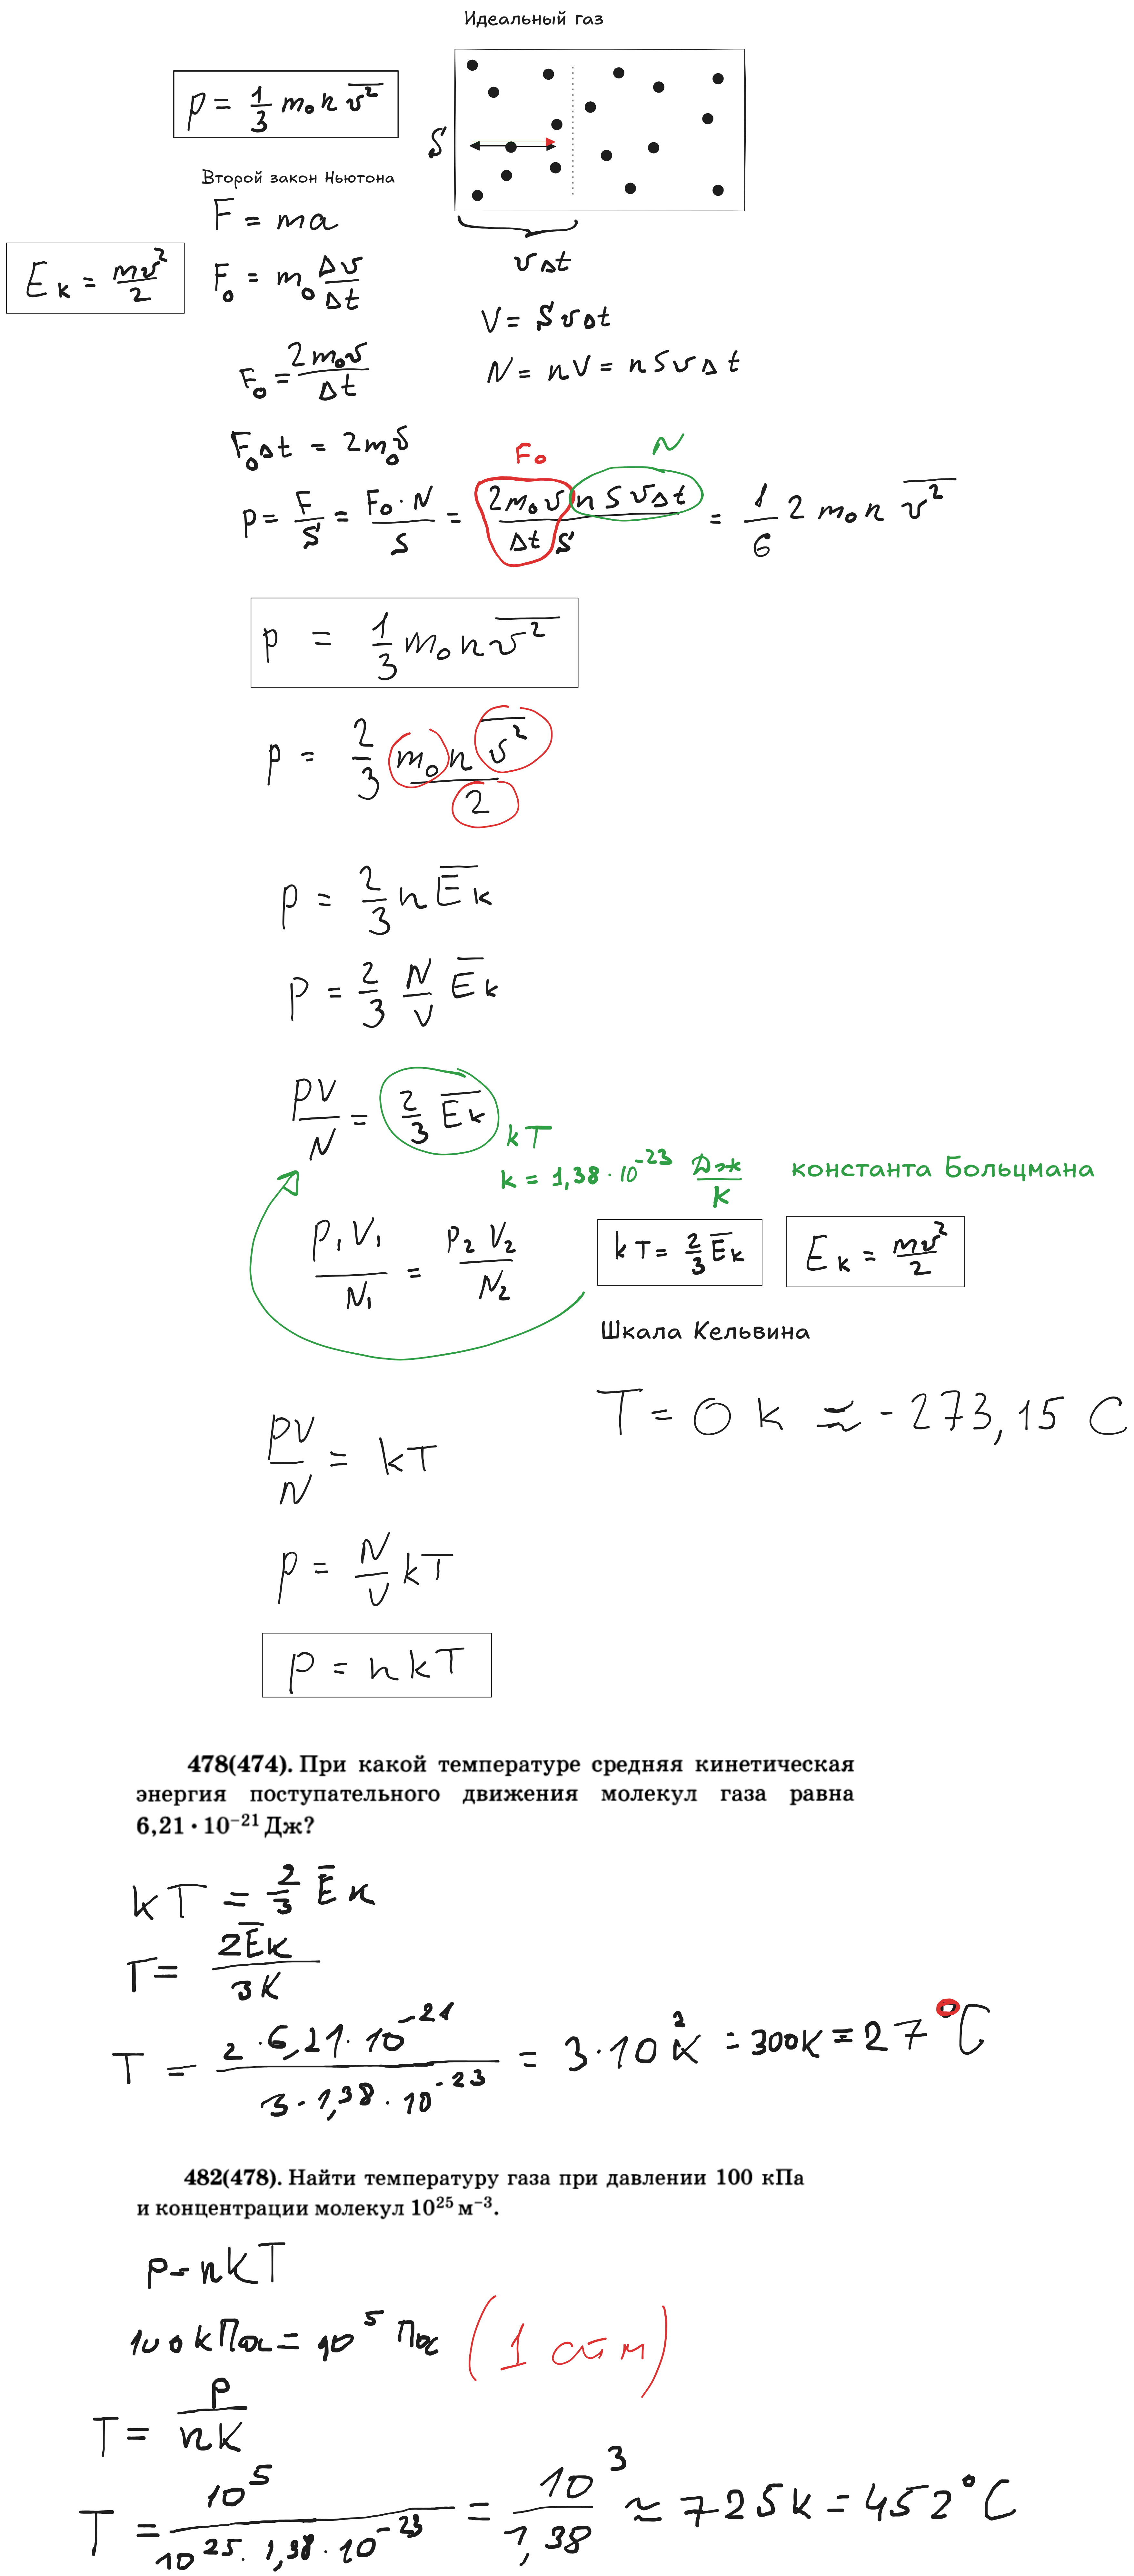 Идеальный газ
p = 1/3 m₀ n v̅²
S
Второй закон Ньютона
F = ma
Eк = mv²/2
F₀ = m₀ Δv/Δt
vΔt
V = SvΔt
F₀ = 2m₀v/Δt
N = nV = nSvΔt
F₀Δt = 2m₀v
F₀
N
p = F/S = F₀·N/S = 2m₀v nSvΔt/Δt S = 1/6 2 m₀ n v̅²
p = 1/3 m₀ n v̅²
p = 2/3 m₀ n v̅²/2
p = 2/3 n E̅к
p = 2/3 N/V E̅к
pV/N = 2/3 E̅к
kT
k = 1,38·10⁻²³ Дж/К
константа Больцмана
p₁V₁/N₁ = p₂V₂/N₂
kT = 2/3 E̅к
Eк = mv²/2
Шкала Кельвина
T = 0 K ≈ -273,15 C
pV/N = kT
p = N/V kT
p = nkT
478(474). При какой температуре средняя кинетическая
энергия поступательного движения молекул газа равна
6,21 • 10⁻²¹ Дж?
kT = 2/3 E̅к
T = 2E̅к/3K
T = 2·6,21·10⁻²¹/3·1,38·10⁻²³ = 3·10² K = 300K = 27°C
482(478). Найти температуру газа при давлении 100 кПа
и концентрации молекул 10²⁵ м⁻³.
p = nKT
100 кПа = 10⁵ Па (1 атм)
T = p/nK
T = 10⁵/10²⁵·1,38·10⁻²³ = 10³/1,38 ≈ 725K = 452°C